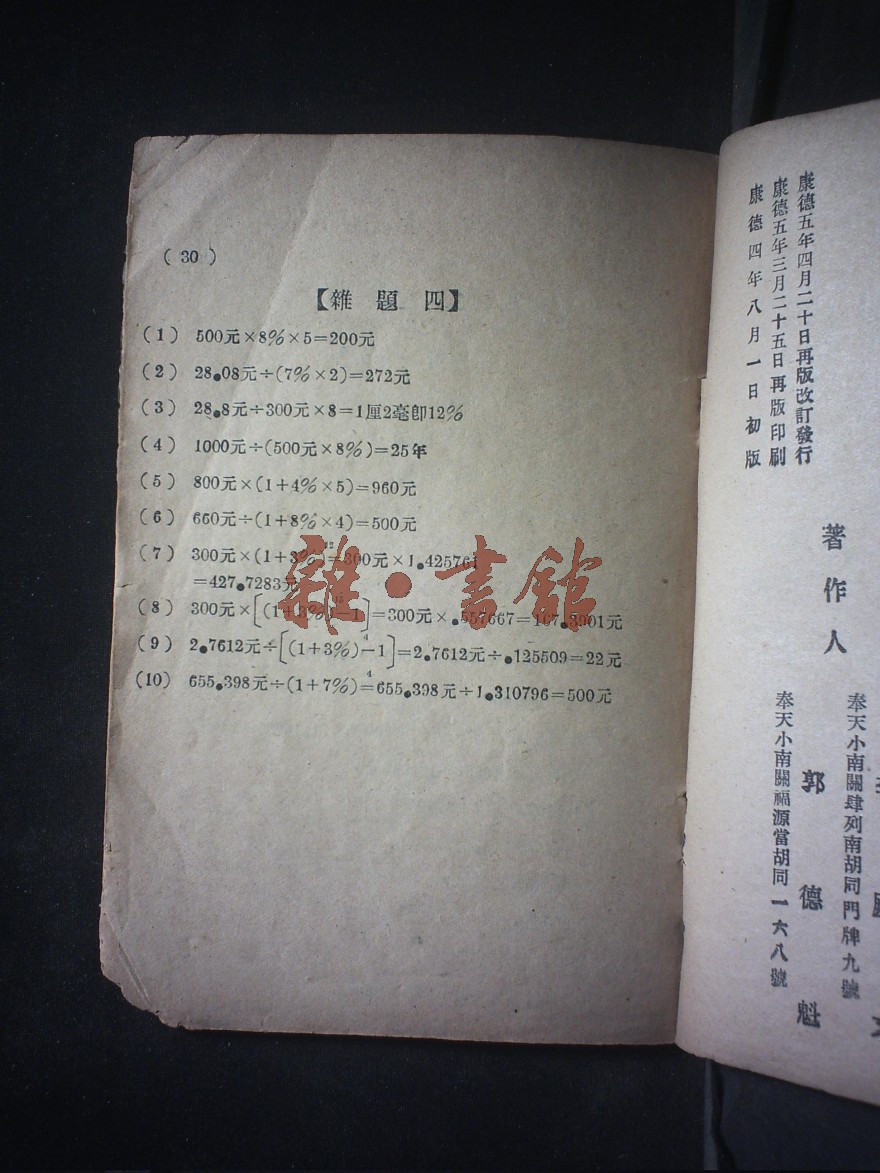 ( 30 )
【雜題四】
(1) 500元×8%×5=200元
(2) 28.08元÷(7%×2)=272元
(3) 28.8元÷300元×8=1厘2毫卽12%
(4) 1000元÷(500元×8%)=25年
(5) 800元×(1+4%×5)=960元
(6) 660元÷(1+8%×4)=500元
(7) 300元×(1+3%)¹²=300元×1.425761
=427.7283元
(8) 300元×[(1+3%)¹⁵-1]=300元×.557667=167.3901元
(9) 2.7612元÷[(1+3%)⁴-1]=2.7612元÷.125509=22元
(10) 655.398元÷(1+7%)⁴=655.398元÷1.310796=500元
雜·書館
康德五年四月二十日再版改訂發行
康德五年三月二十五日再版印刷
康德四年八月一日初版
著作人
奉天小南關肆列南胡同門牌九號
郭德魁
奉天小南關福源當胡同一六八號